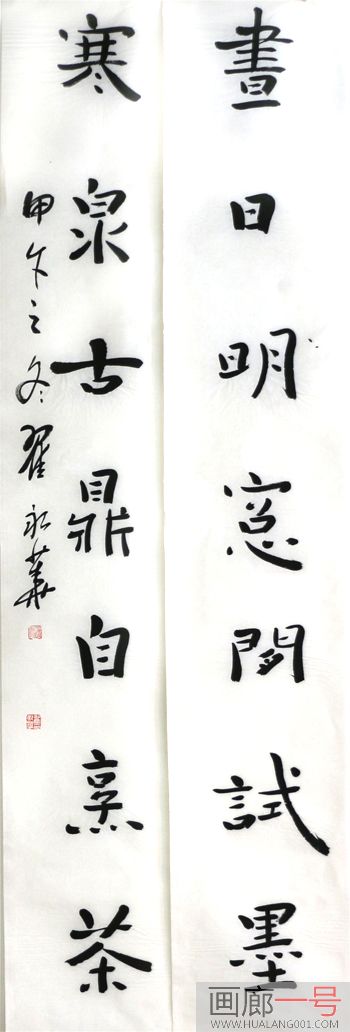 晝日明窓閒試墨
寒泉古鼎自烹茶
甲午之冬翟永華
画廊一号
WWW.HUALANG001.COM